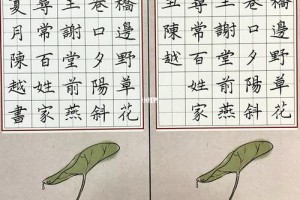 橋邊野草花
巷口夕陽斜
王謝堂前燕
尋常百姓家
丑陳越
橋邊野草花
巷口夕陽斜
王謝堂前燕
尋常百姓家
夏月陳越書